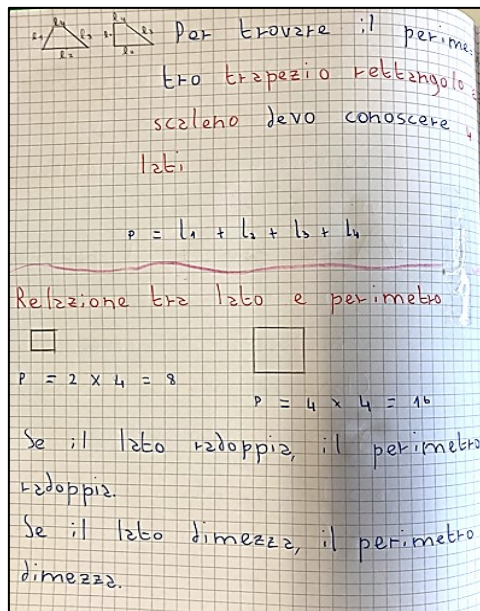 l₄ l₄
l₁ l₃ l₁ l₃ Per trovare il perime-
l₂ l₂
tro trapezio rettangolo e
scaleno devo conoscere 4
lati
P = l₁ + l₂ + l₃ + l₄
Relazione tra lato e perimetro
P = 2 x 4 = 8
P = 4 x 4 = 16
Se il lato radoppia, il perimetro
radoppia.
Se il lato dimezza, il perimetro
dimezza.